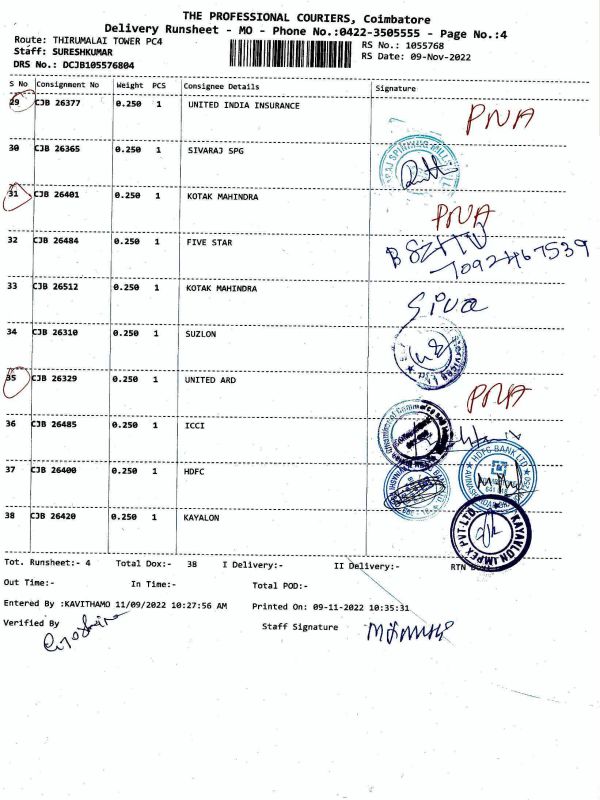 THE PROFESSIONAL COURIERS, Coimbatore
Delivery Runsheet - MO - Phone No.:0422-3505555 - Page No.:4
Route: THIRUMALAI TOWER PC4 RS No.: 1055768
Staff: SURESHKUMAR RS Date: 09-Nov-2022
DRS No.: DCJB105576804
S No Consignment No Weight PCS Consignee Details Signature
29 CJB 26377 0.250 1 UNITED INDIA INSURANCE PNA
30 CJB 26365 0.250 1 SIVARAJ SPG
31 CJB 26401 0.250 1 KOTAK MAHINDRA PNA
32 CJB 26484 0.250 1 FIVE STAR
7092467539
33 CJB 26512 0.250 1 KOTAK MAHINDRA Siva
34 CJB 26310 0.250 1 SUZLON
35 CJB 26329 0.250 1 UNITED ARD PNA
36 CJB 26485 0.250 1 ICCI
37 CJB 26400 0.250 1 HDFC HDFC BANK LTD
38 CJB 26420 0.250 1 KAYALON KAYAKLON IMPEX PVT.LTD.
Tot. Runsheet:- 4 Total Dox:- 38 I Delivery:- II Delivery:- RTN
Out Time:- In Time:- Total POD:-
Entered By :KAVITHAMO 11/09/2022 10:27:56 AM Printed On: 09-11-2022 10:35:31
Verified By Staff Signature